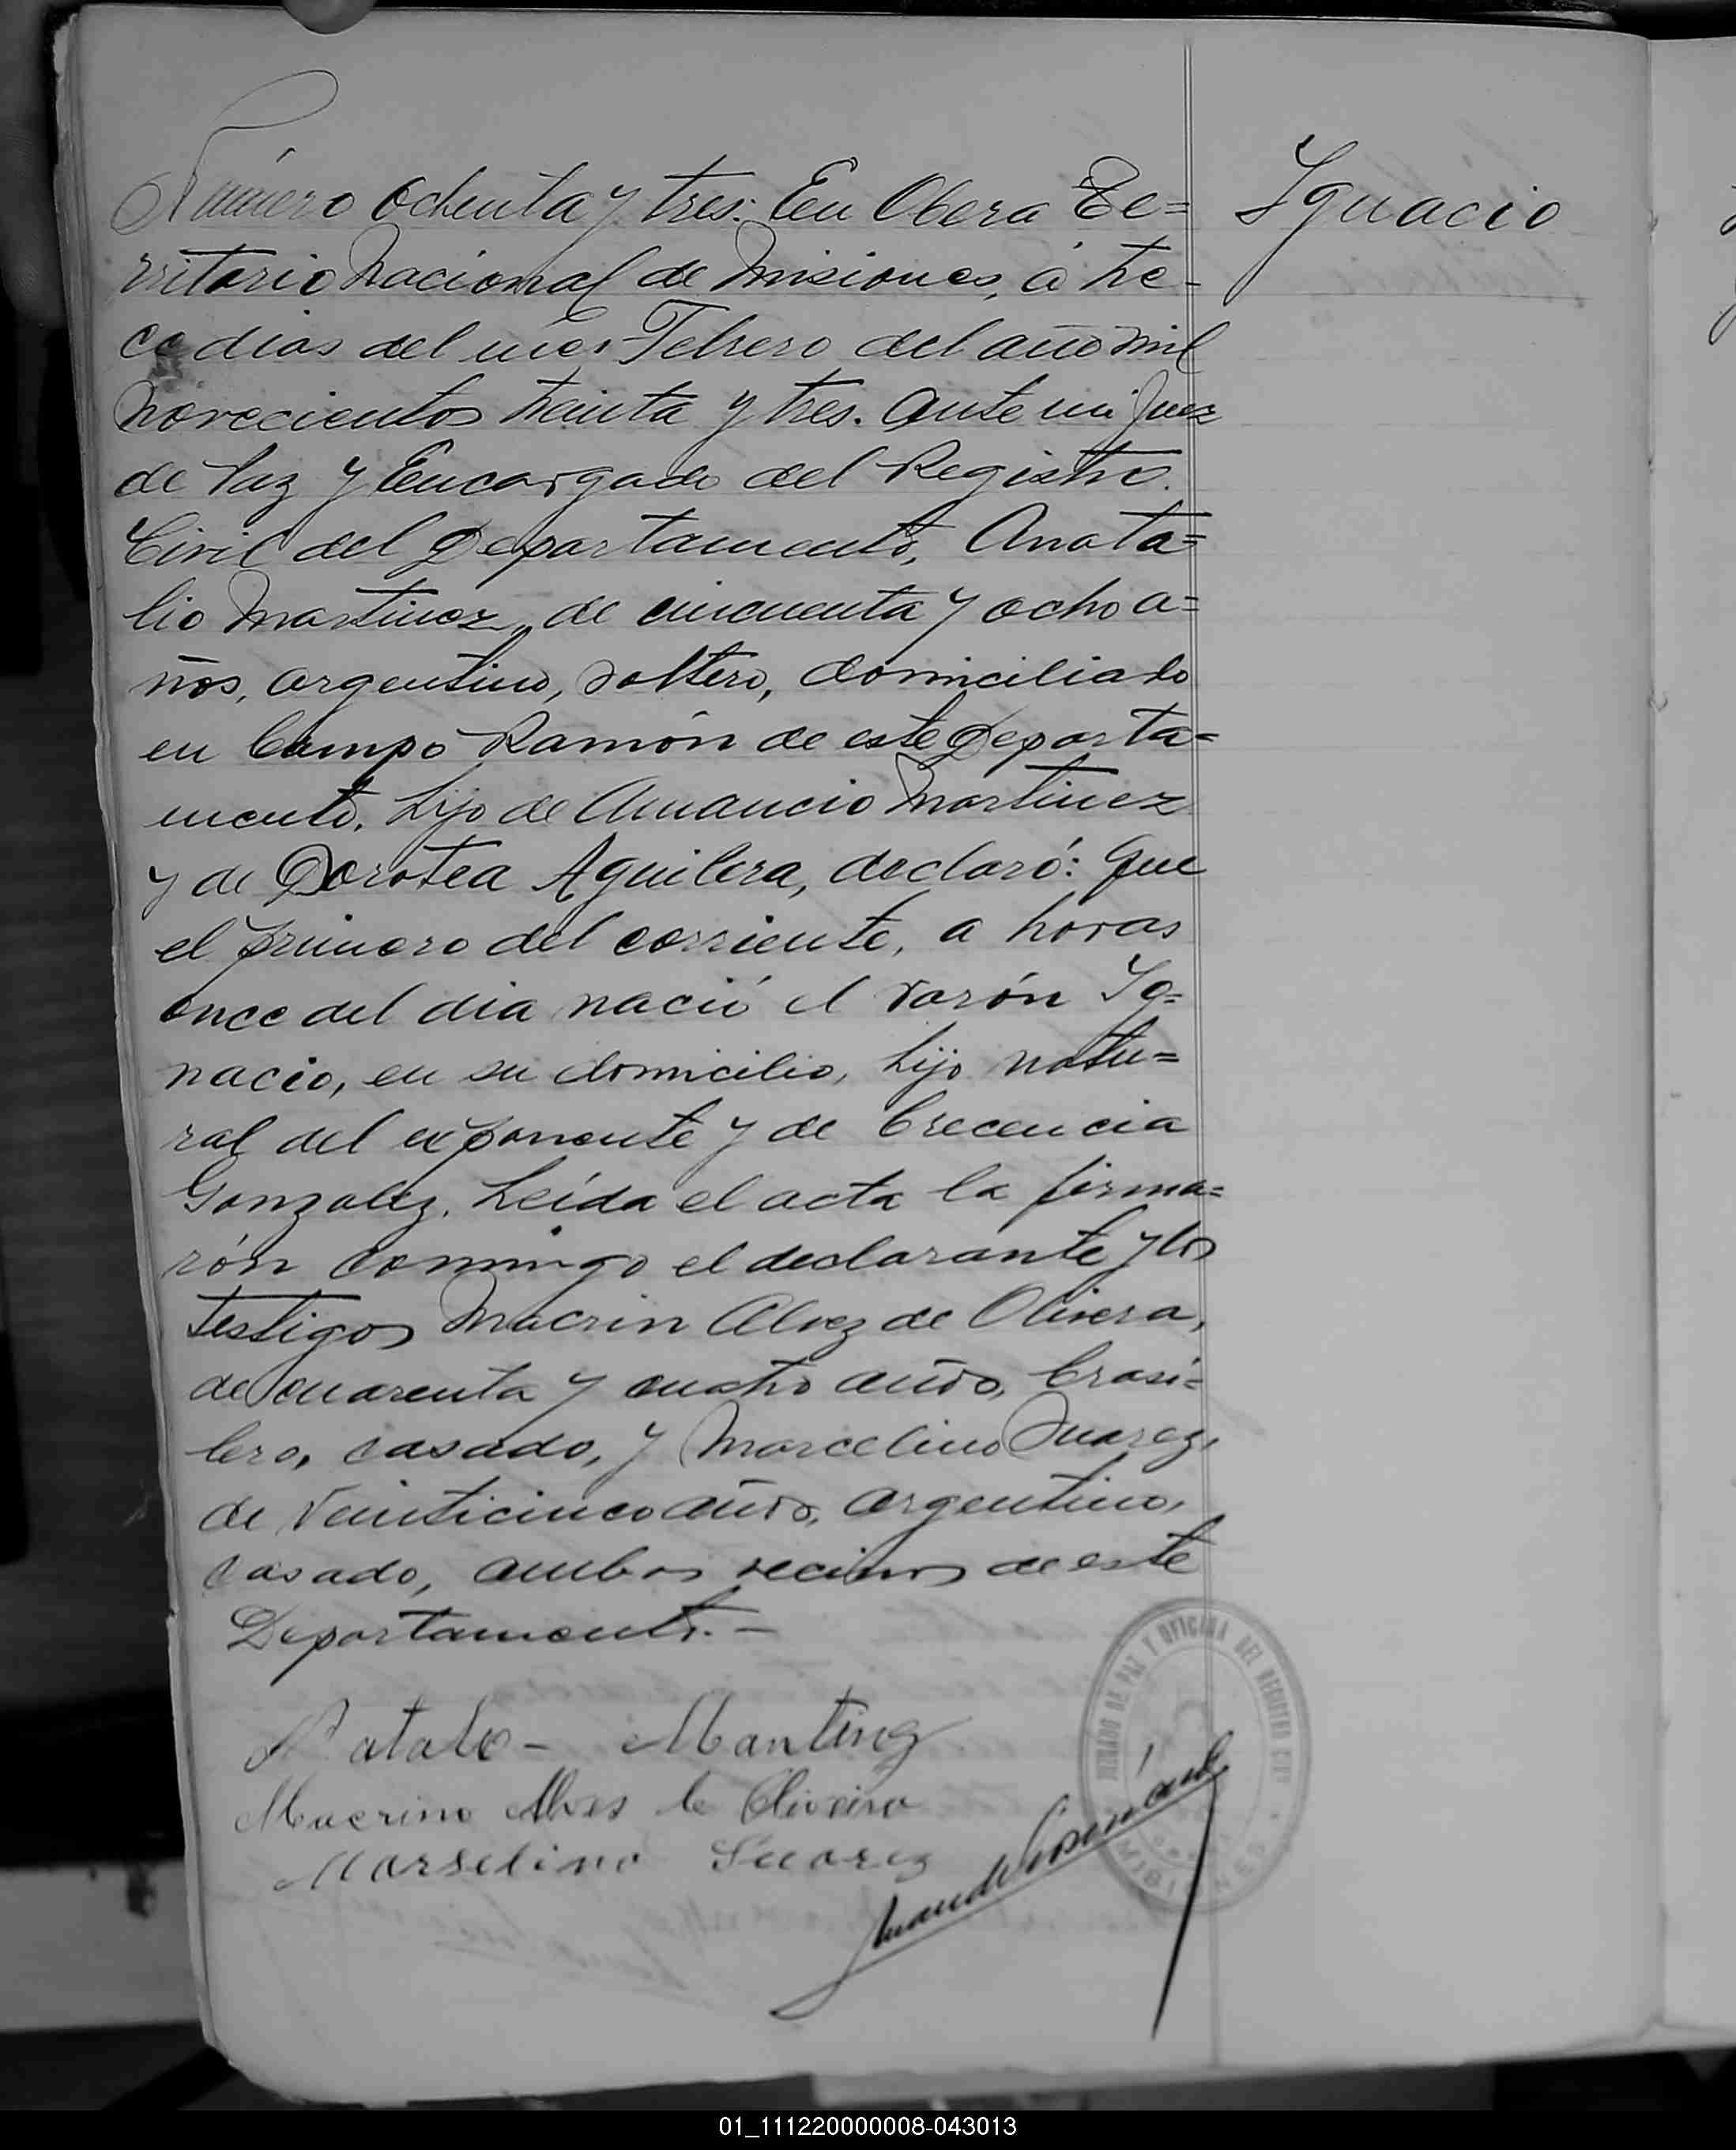 Número ochenta y tres: En Obera Te=
rritorio Nacional de Misiones, á tre-
ce dias del mes Febrero del año mil
novecientos treinta y tres. Ante mi Juez
de Paz y Encargado del Registro
Civil del Departamento, Anata=
lio Martinez, de cincuenta y ocho a=
ños, argentino, soltero, domiciliado
en Campo Ramón de este Departa=
mento, hijo de Amancio Martinez
y de Dorotea Aguilera, declaró: Que
el primero del corriente, a horas
once del dia nació el varón Ig=
nacio, en su domicilio, hijo natu=
ral del exponente y de Crecencia
Gonzalez. Leída el acta la firma=
rón conmigo el declarante y los
testigos Macrin Alvez de Olivera,
de cuarenta y cuatro años, brasi=
lero, casado, y Marcelino Suarez,
de veinticinco años, argentino,
casado, ambos vecinos de este
Departamento.-
Natalo - Mantinez
Macrino Alves de Oliveira
Marselino Suarez
Juan de
Ignacio
JUZGADO DE PAZ Y OFICINA DEL REGISTRO CIVIL
MISIONES
01_111220000008-043013